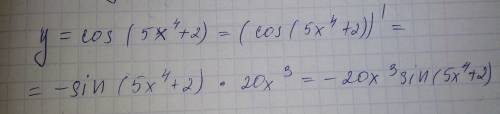 y = cos (5x⁴+2) = (cos(5x⁴+2))' =
= -sin (5x⁴+2) · 20x³ = -20x³sin(5x⁴+2)